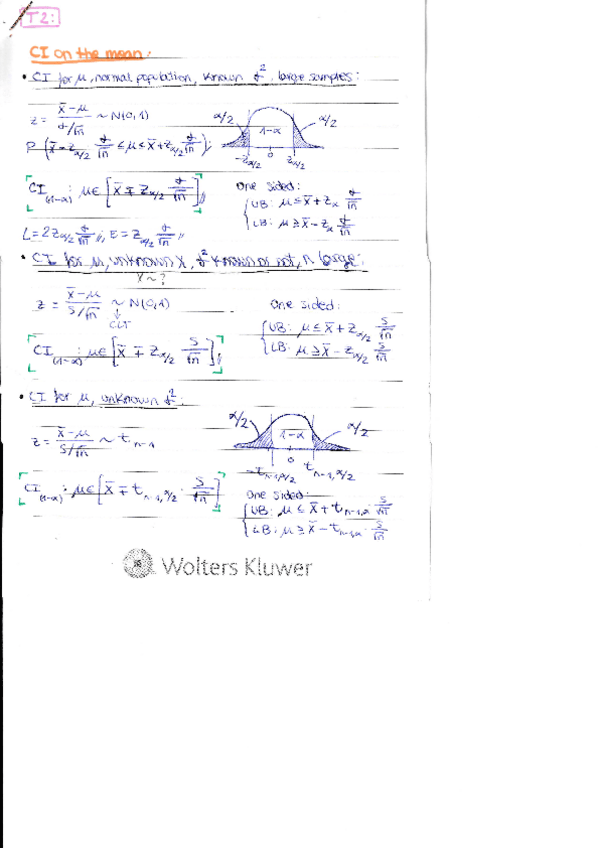 T2:
CI on the mean:
• CI for μ, normal population, known σ², large samples:
z = (x̄-μ)/(σ/√n) ~ N(0,1)
α/2 1-α α/2
P (x̄-z_α/2 σ/√n ≤ μ ≤ x̄+z_α/2 σ/√n);
-z_α/2 0 z_α/2
CI_(1-α): μ∈[x̄ ∓ z_α/2 σ/√n]//
One sided:
UB: μ ≤ x̄ + z_α σ/√n
LB: μ ≥ x̄ - z_α σ/√n
L = 2z_α/2 σ/√n//; E = z_α/2 σ/√n//
• CI for μ, unknown X, σ² known or not, n large:
X ~ ?
z = (x̄-μ)/(S/√n) ~ N(0,1)
↓
CLT
One sided:
UB: μ ≤ x̄ + z_α/2 S/√n
LB: μ ≥ x̄ - z_α/2 S/√n
CI_(1-α): μ∈[x̄ ∓ z_α/2 S/√n]//
• CI for μ, unknown σ²:
z = (x̄-μ)/(S/√n) ~ t_n-1
α/2 1-α α/2
-t_n-1,α/2 0 t_n-1,α/2
CI_(1-α): μ∈[x̄ ∓ t_n-1,α/2 · S/√n]
One sided:
UB: μ ≤ x̄ + t_n-1,α · S/√n
LB: μ ≥ x̄ - t_n-1,α · S/√n
Wolters Kluwer